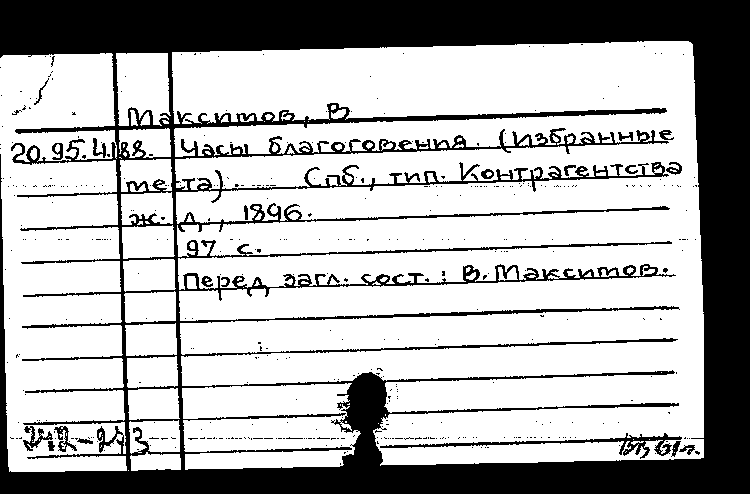 Максимов, В
20.95.4.188. Часы благоговения. (Избранные
места). Спб., тип. Контрагентства
ж. д., 1896.
97 с.
Перед загл. сост.: В. Максимов.
242-243